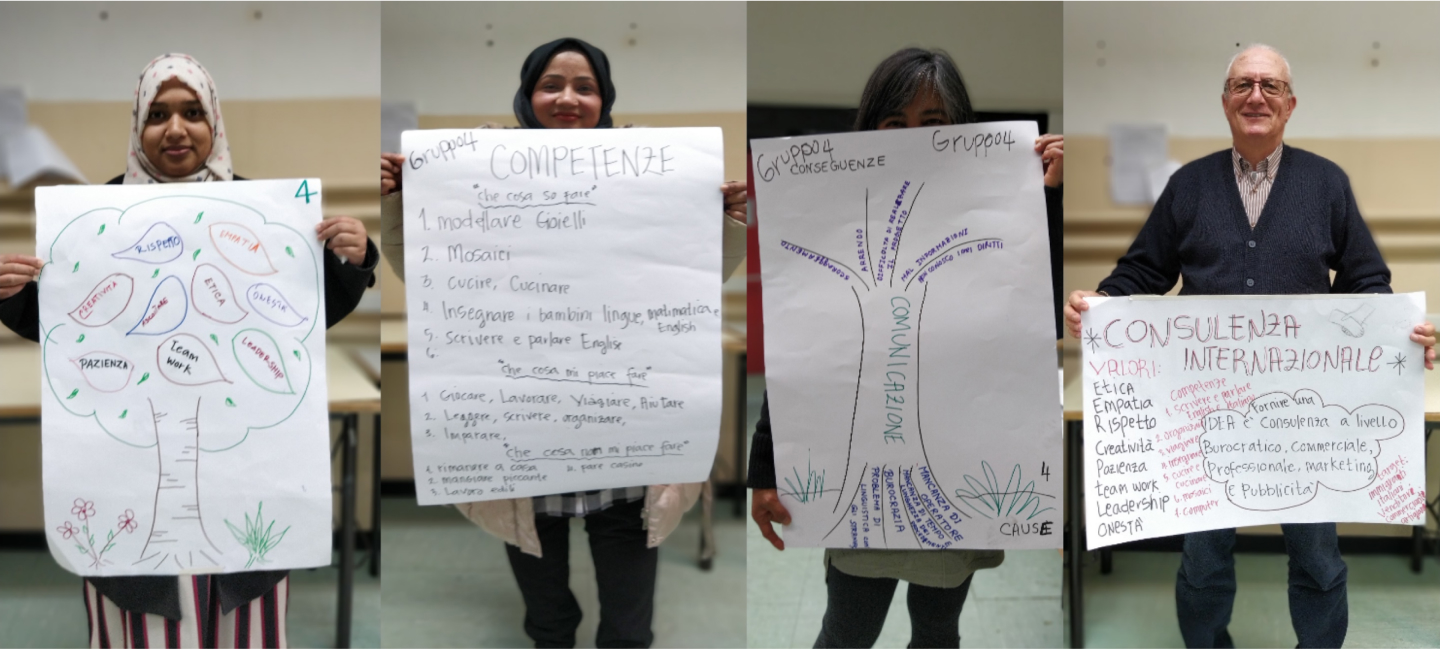 4
RISPETTO
EMPATIA
CREATIVITÀ
ETICA
ONESTÀ
PAZIENZA
Team
WORK
LEADERSHIP
Gruppo4
COMPETENZE
"che cosa so fare"
1. modellare Gioielli
2. Mosaici
3. Cucire, Cucinare
4. Insegnare i bambini lingue, matimatica e
English
5. Scrivere e parlare Englise
6.
"che cosa mi piace fare"
1 Giocare, Lavorare, Viaggiare, Aiutare
2. Leggere, scrivere, organizare,
3. Imparare,
"che cosa non mi piace fare"
1. rimanere a casa 4. fare casino
2. mangiare piccante
3. Lavoro
Gruppo4
Gruppo4
CONSEGUENZE
ARREDO
DIFFICOLTÀ DI REALIZZARE
IL PRODOTTO
MAL INFORMAZIONI
NON CONOSCO I MIEI DIRITTI
COMUNICAZIONE
PROBLEMA DI
LINGUISTICA
BUROCRAZIA
MANCANZA DI TEMPO E
MANCANZA DI
OPERATORE
4
CAUSE
*CONSULENZA
INTERNAZIONALE*
VALORI:
ETICA
Empatia
Rispetto
Creatività
Pazienza
team work
Leadership
ONESTÀ
Competenze
1. Scrivere e parlare
English e italiano
2. organizzare
3. viaggiare
4. insegnare
5. cucire e
cucinare
6. mosaici
7. Computer
Fornire una
IDEA e Consulenza a livello
Burocratico, Commerciale,
Professionale, marketing
e Pubblicità
target:
immigrati
italiani